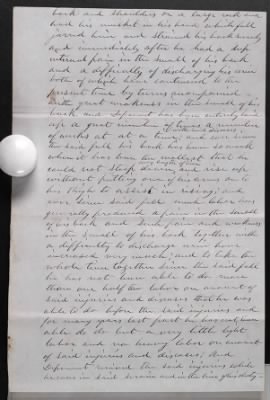 back and shoulders on a large rock and
had his musket in his hand which fall
jarred him and strained his back severely
and immediately after he had a deep
internal pain in the small of his back
and a difficulty of discharging his urine
both of which have continued to the
present time by turns accompanied
with great weakness in the small of his
back and Deponent has been entirely laid
up a great number of times a number
of weeks at at a time; and ever since
the said fall his back has been so weak
when it has been the smallest that he
could not stoop down and rise up
without putting one of his arms on to
his thigh to assist in rising; and
ever since said fall much labor has
generally produced a pain in the small
of his back and such pain and weakness
in the small of his back together with
a difficulty to discharge urine have
increased very much; and to take the
whole time together since the said fall
he has not been able to do more
than one half the labor on account of
said injuries and diseases that he was
able to do before the said injuries and
for many years last past he has not been
able to do but a very little light
labor and no heavy labor on account
of said injuries and diseases; And
Deponent received the said injuries while
he was in said service and in the line of his duty